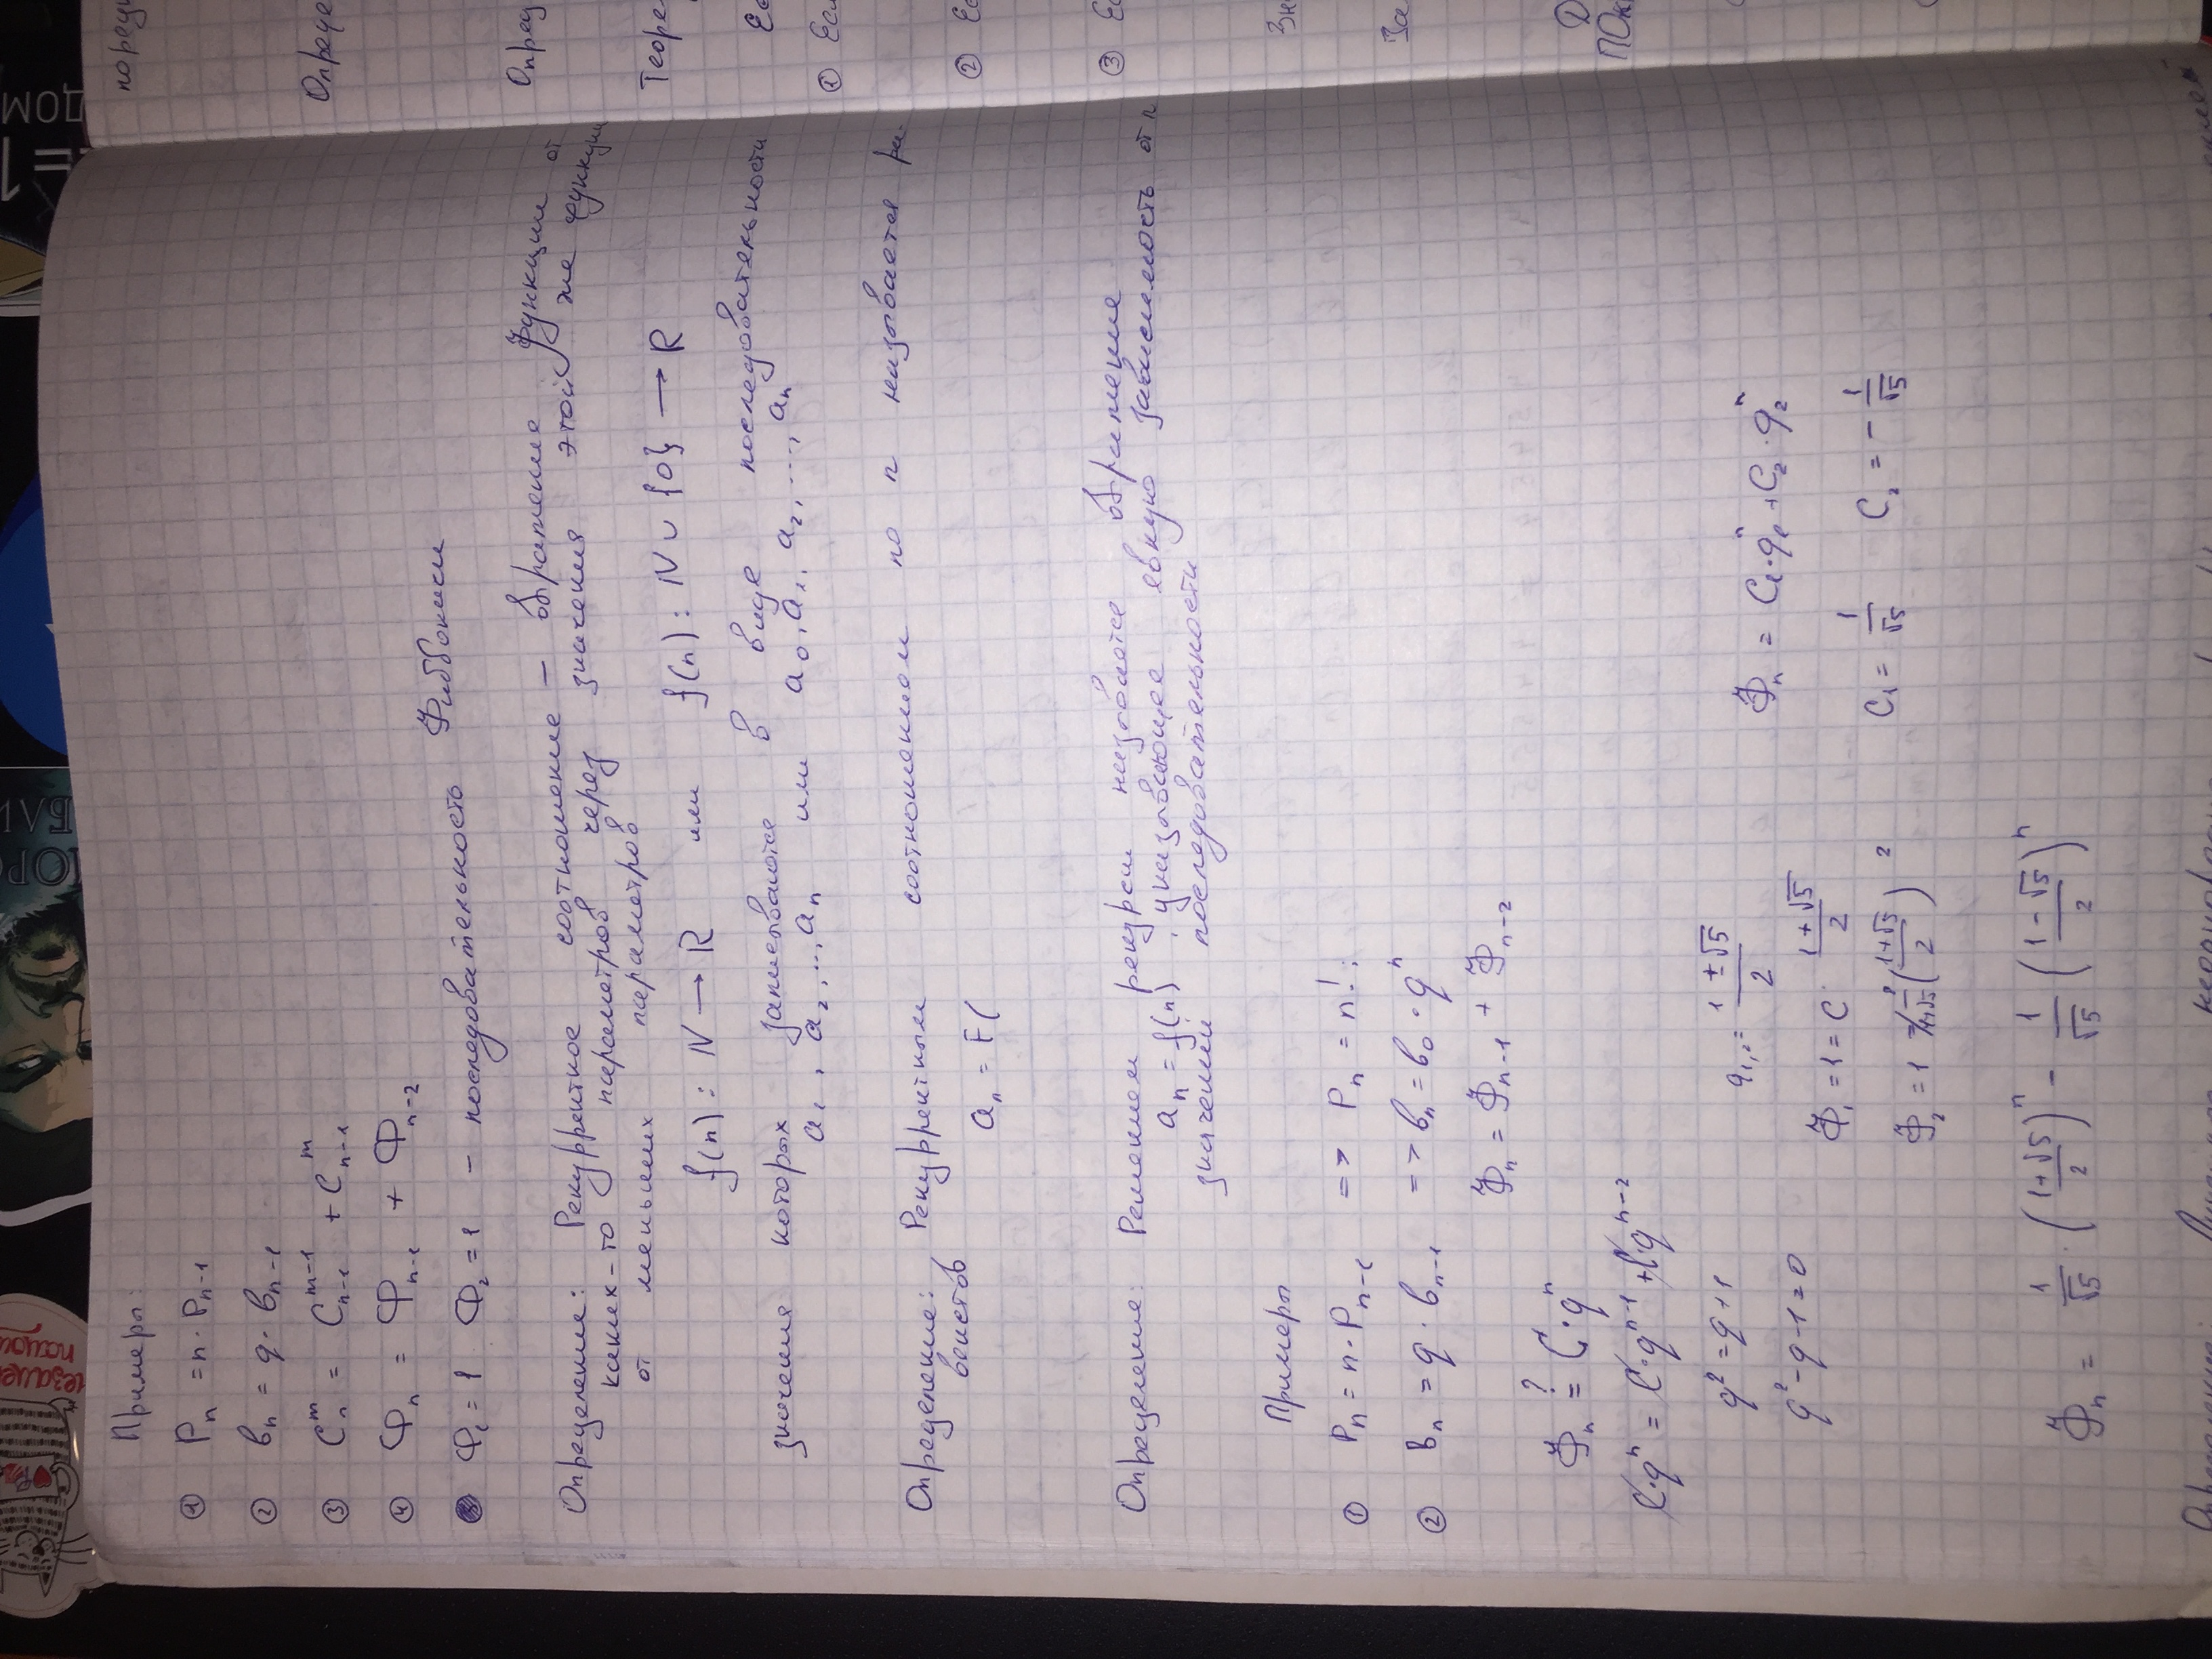 незаме
пощо
ЮРС
БЛИ
=1
ДОМ
Примеры:
① Pn = n · Pn-1
② bn = q · bn-1
③ C_n^m = C_{n-1}^{m-1} + C_{n-1}^m
④ Фn = Фn-1 + Фn-2
Ф1 = 1 Ф2 = 1 – последовательность Фиббоначи
Определение: Рекуррентное соотношение – выражение функции от
каких-то параметров через значения этой же функции
от меньших параметров
f(n): N → R или f(n): N ∪ {0} → R
значения которых записываются в виде последовательности
a1, a2, ..., an или a0, a1, a2, ..., an
Определение: Рекуррентным соотношением по n называется ра-
венство
an = F(
Определение: Решением рекурсии называется выражение
an = f(n), указывающее явную зависимость от n
значений последовательности
Примеры
① Pn = n · Pn-1 => Pn = n!;
② bn = q · bn-1 => bn = b0 · q^n
Фn = Фn-1 + Фn-2
Фn =? C · q^n
C · q^n = C · q^{n-1} + C · q^{n-2}
q² = q + 1
q1,2 = (1 ± √5)/2
Фn = C1 · q1^n + C2 · q2^n
q² - q - 1 = 0
Ф1 = 1 = C · (1 + √5)/2
C1 = 1/√5 C2 = - 1/√5
Ф2 = 1 ((1+√5)/2)²
Фn = 1/√5 · ((1+√5)/2)^n - 1/√5 ((1-√5)/2)^n
Определение:
Опреде
Опред
Теоре
Ес
① Есл
② Ес
③ Ес
Зн
За